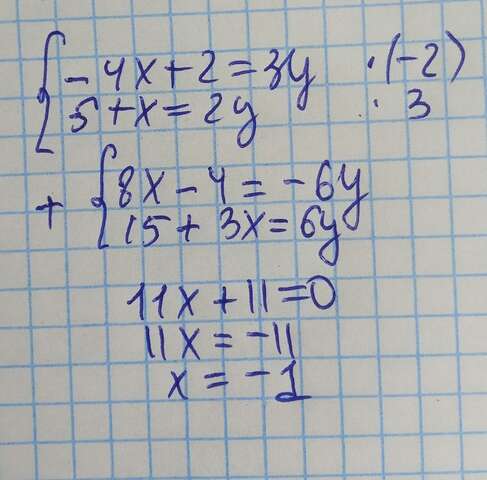 { - 4x + 2 = 3y · (-2)
5 + x = 2y · 3
+ { 8x - 4 = - 6y
15 + 3x = 6y
11x + 11 = 0
11x = -11
x = -1